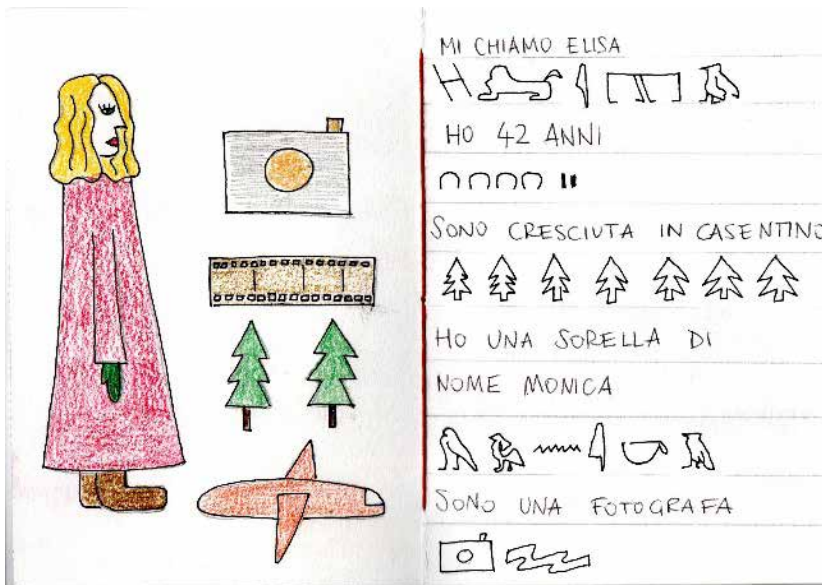 MI CHIAMO ELISA
HO 42 ANNI
SONO CRESCIUTA IN CASENTINO
HO UNA SORELLA DI
NOME MONICA
SONO UNA FOTOGRAFA